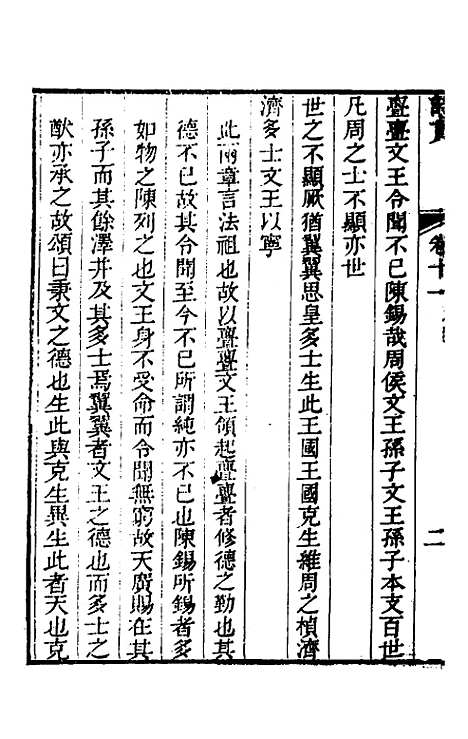 卷十一
二
亹亹文王令聞不已陳錫哉周侯文王孫子文王孫子本支百世
凡周之士不顯亦世
世之不顯厥猶翼翼思皇多士生此王國王國克生維周之楨濟
濟多士文王以寧
此兩章言法祖也故以亹亹文王領起亹亹者修德之勤也其
德不已故其令聞至今不已所謂純亦不已也陳錫所錫者多
如物之陳列之也文王身不受命而令聞無窮故天廣賜在其
孫子而其餘澤并及其多士焉翼翼者文王之德也而多士之
猷亦承之故頌曰秉文之德也生此與克生異生此者天也克